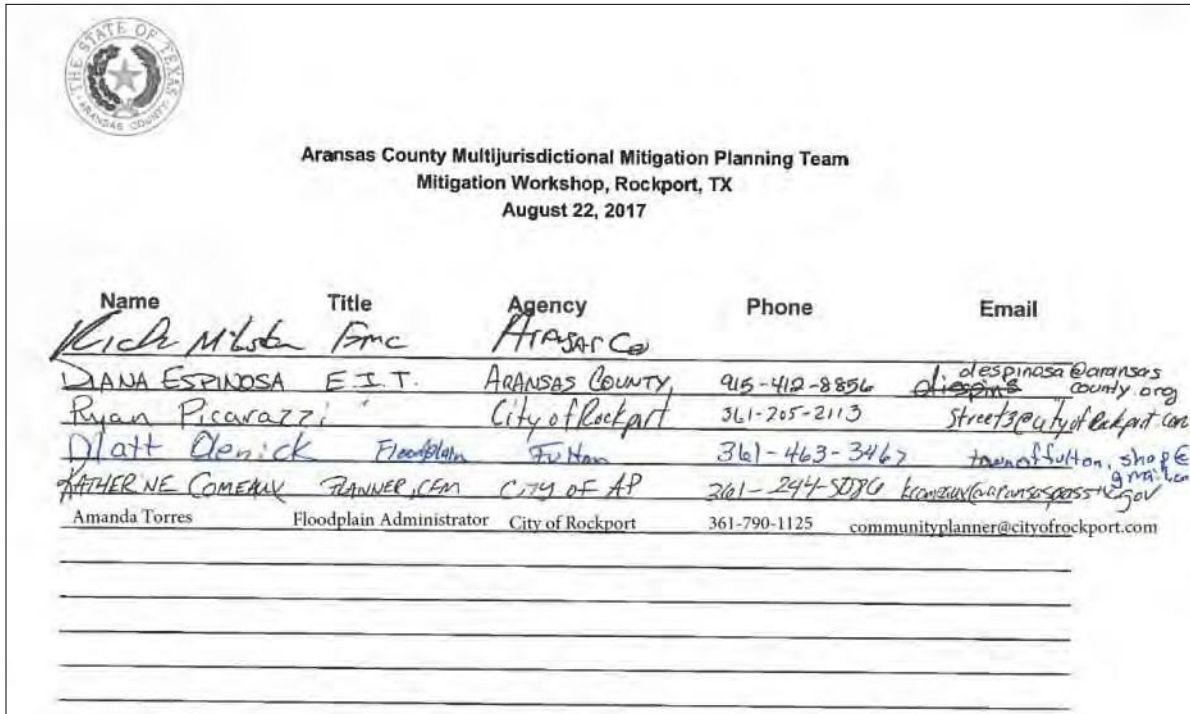 THE STATE OF TEXAS
ARANSAS COUNTY
Aransas County Multijurisdictional Mitigation Planning Team
Mitigation Workshop, Rockport, TX
August 22, 2017
Name Title Agency Phone Email
Rick EMC Co
DIANA ESPINOSA E.I.T. ARANSAS COUNTY, 915-412-8856 despinosa@aransas
county.org
Ryan Picarazzi City of Rockport 361-205-2113 Street3@cityofRockport.com
Matt Floodplain Fulton 361-463-3467 townoffulton.shop@
gmail.com
KATHERINE COMEAUX PLANNER, CFM CITY OF AP 361-244-5086
Amanda Torres Floodplain Administrator City of Rockport 361-790-1125 communityplanner@cityofrockport.com